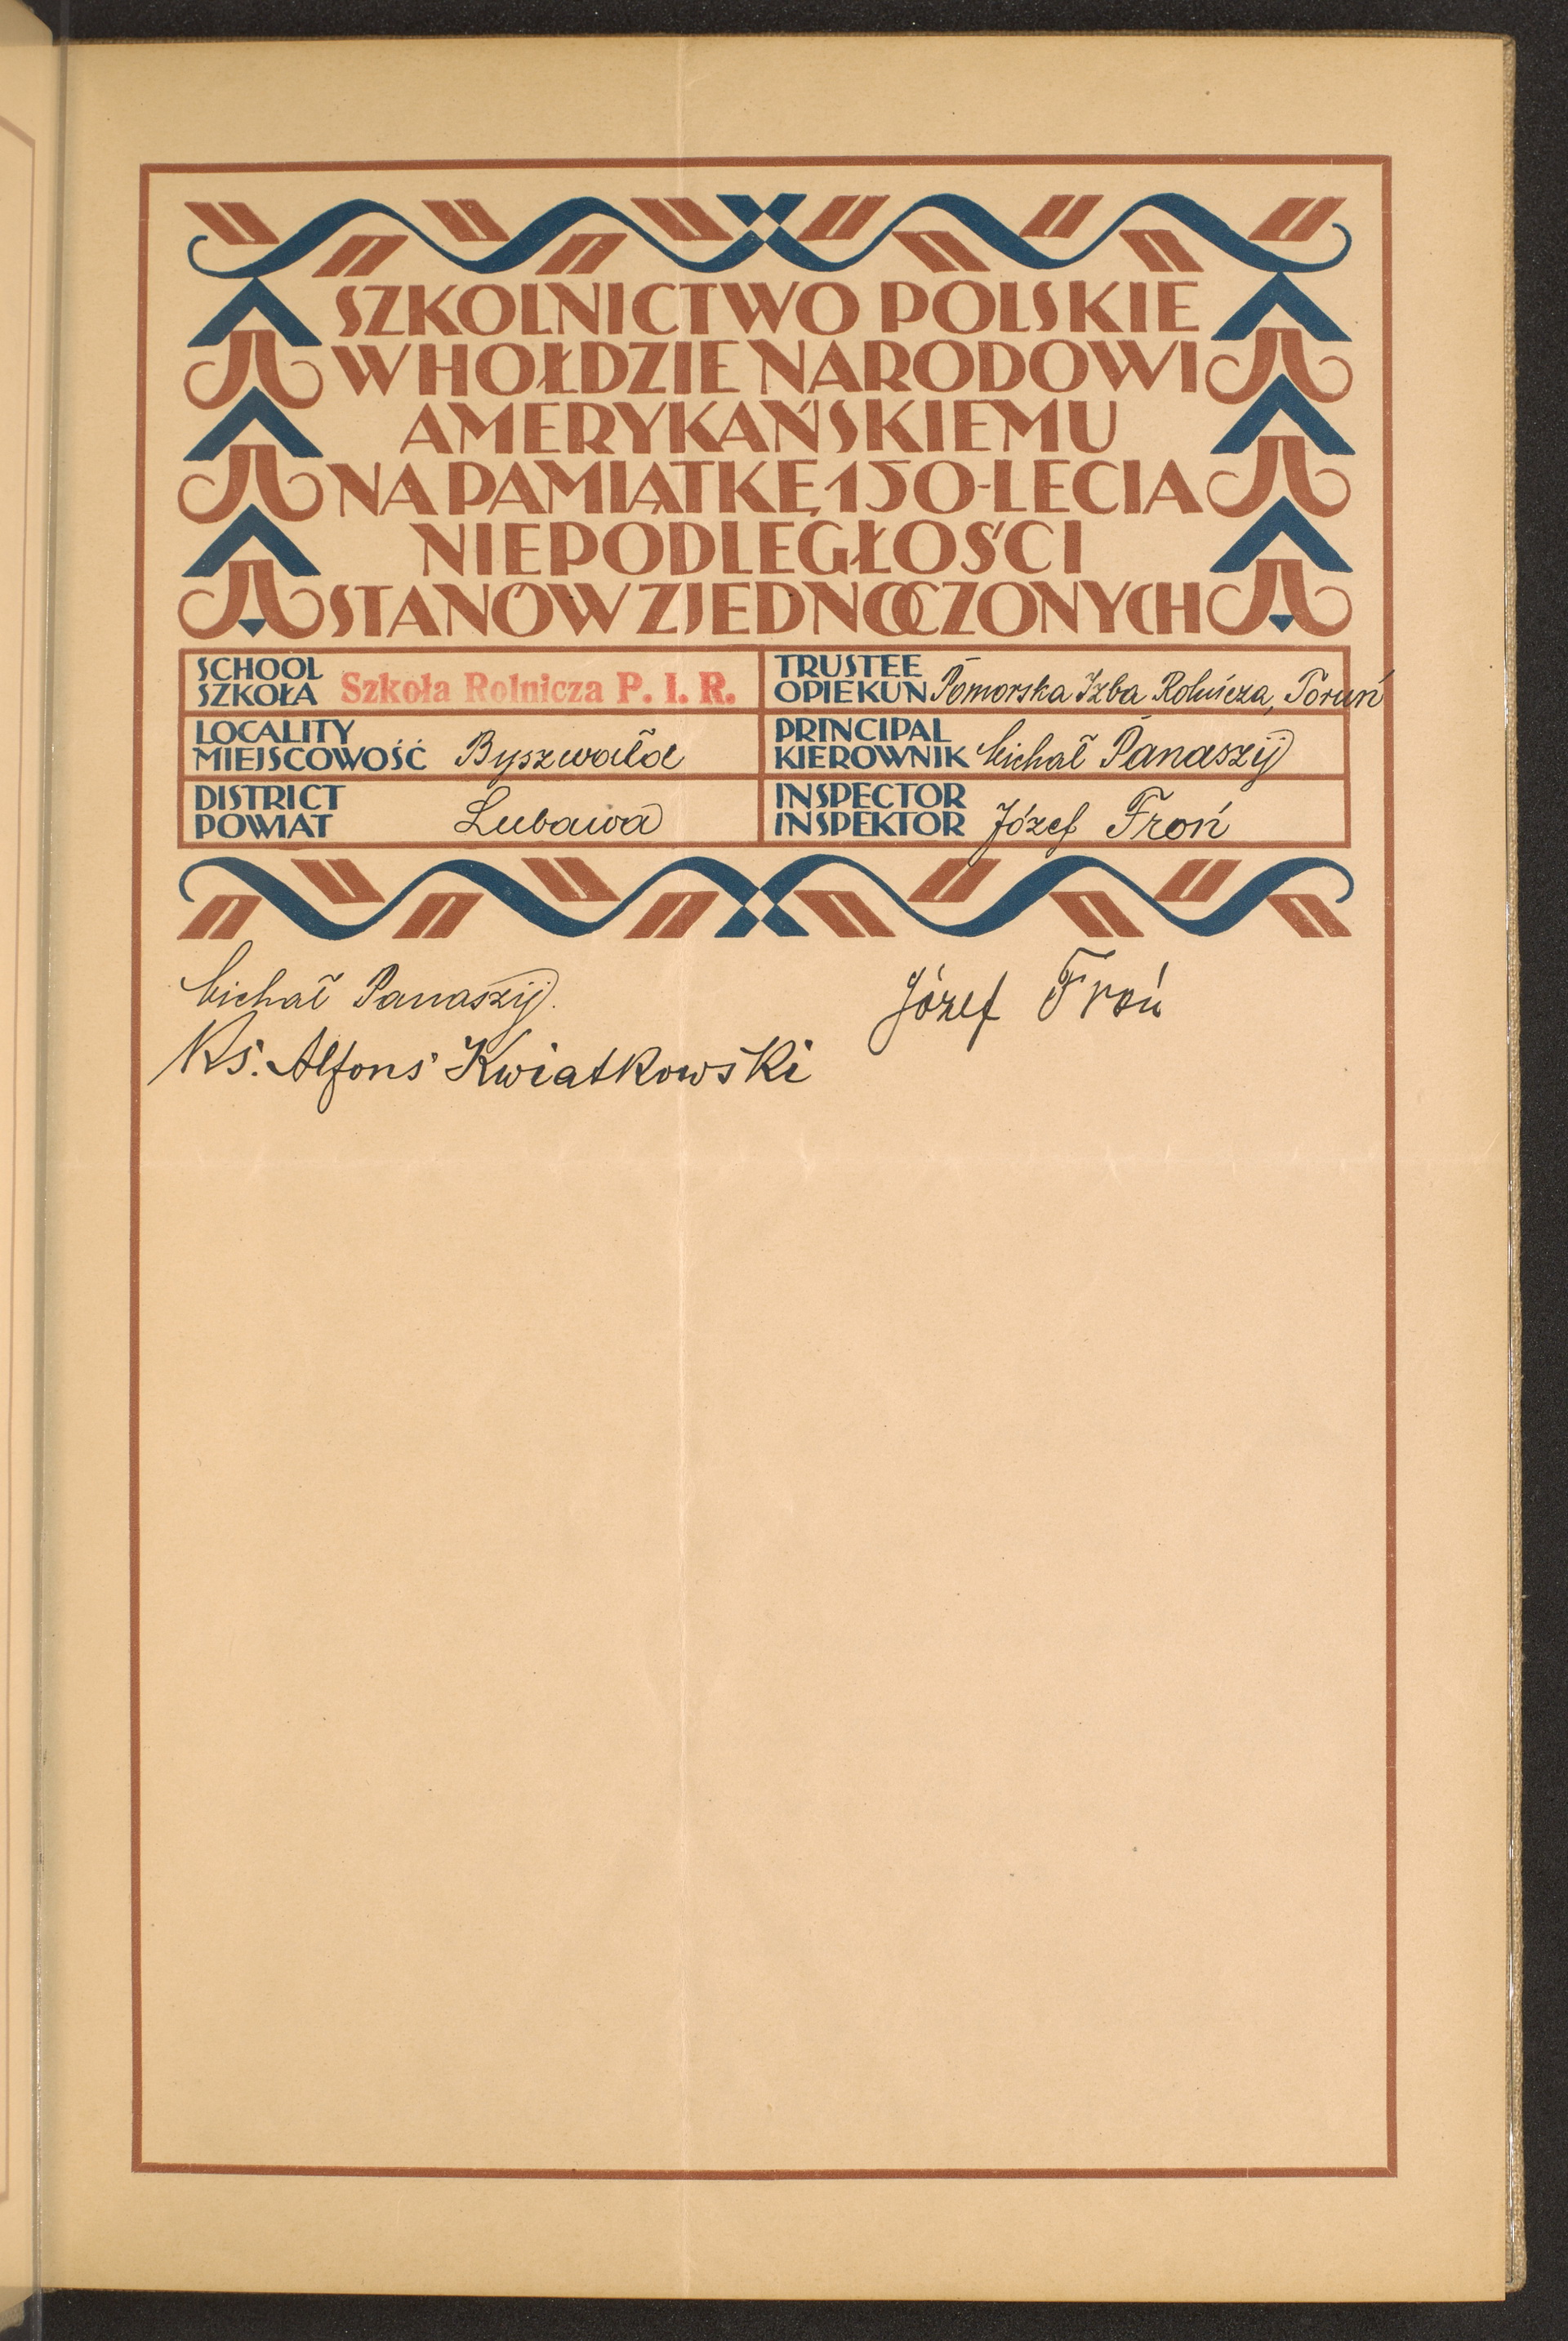 SZKOLNICTWO POLSKIE
W HOŁDZIE NARODOWI
AMERYKAŃSKIEMU
NA PAMIĄTKĘ 150-LECIA
NIEPODLEGŁOŚCI
STANÓW ZJEDNOCZONYCH
SCHOOL
SZKOŁA Szkoła Rolnicza P. I. R.
TRUSTEE
OPIEKUN Pomorska Izba Rolnicza, Toruń
LOCALITY
MIEJSCOWOŚĆ Byszwałd
PRINCIPAL
KIEROWNIK Michał Panaszij
DISTRICT
POWIAT Lubawa
INSPECTOR
INSPEKTOR Józef Froń
Michał Panaszij.
Józef Froń
Ks. Alfons Kwiatkowski